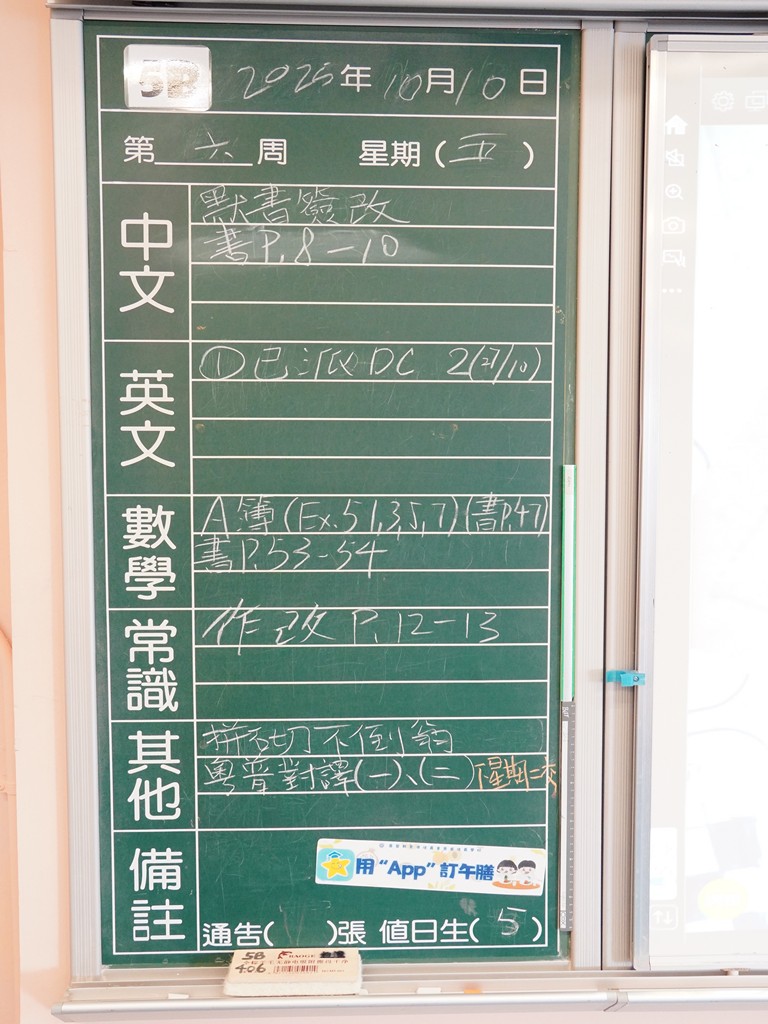 5B 2025年10月10日
第六周 星期(五)
中文
默書簽改
書P.8-10
英文
①已派DC 2(27/10)
數學
A簿(Ex.5 1,3,5,7)(書P.47)
書P.53-54
常識
作改 P.12-13
其他
拼砌不倒翁
粵普對譯(一)、(二)下星期二交
備註
用“App”訂午膳
通告( )張 值日生(5)
5B
406